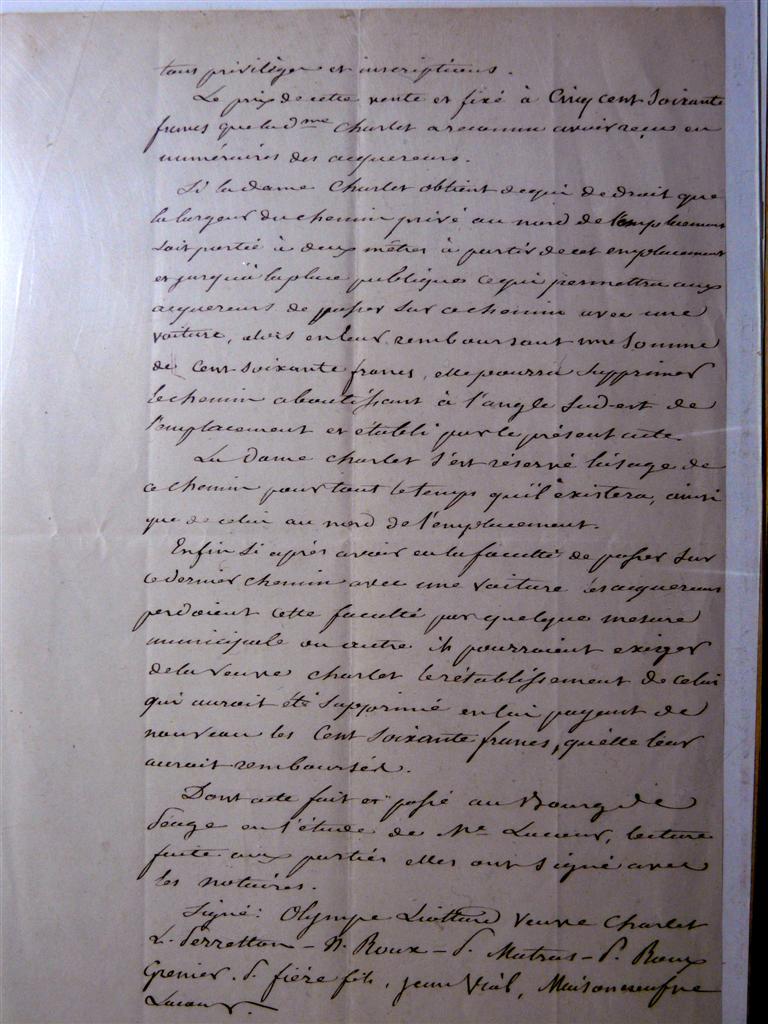 tous privilèges et inscriptions.
Le prix de cette vente est fixé à Cinq cent soixante
francs que la dme Charlet a reconnu avoir reçus en
numéraires des acquereurs.
Si la dame Charlet obtient de qui de droit que
la largeur du chemin privé au nord de l'emplacement
soit portée à deux mètres à partir de cet emplacement
et jusqu'à la place publique ce qui permettra aux
acquereurs de passer sur ce chemin avec une
voiture, alors en leur remboursant une somme
de Cent soixante francs, elle pourra supprimer
le chemin aboutissant à l'angle Sud-est de
l'emplacement et établi par le présent acte.
La dame Charlet s'est réservé l'usage de
ce chemin pour tout le temps qu'il existera, ainsi
que de celui au nord de l'emplacement.
Enfin si après avoir eu la faculté de passer sur
ce dernier chemin avec une voiture les acquereurs
perdoient cette faculté par quelque mesure
municipale ou autre ils pourraient exiger
de la veuve Charlet le rétablissement de celui
qui aurait été supprimé en lui payant de
nouveau les Cent soixante francs, qu'elle leur
aurait remboursés.
Dont acte fait et passé au Bourg de
Péage en l'étude de Me Lacour, lecture
faite aux parties elles ont signé avec
les notaires.
Signé: Olympe Liottard veuve Charlet
L. Perretton - N. Roux - P. Matras - P. Roux
Grenier. P. fière fils, jean Vial, Maisonneufve
Lacour.